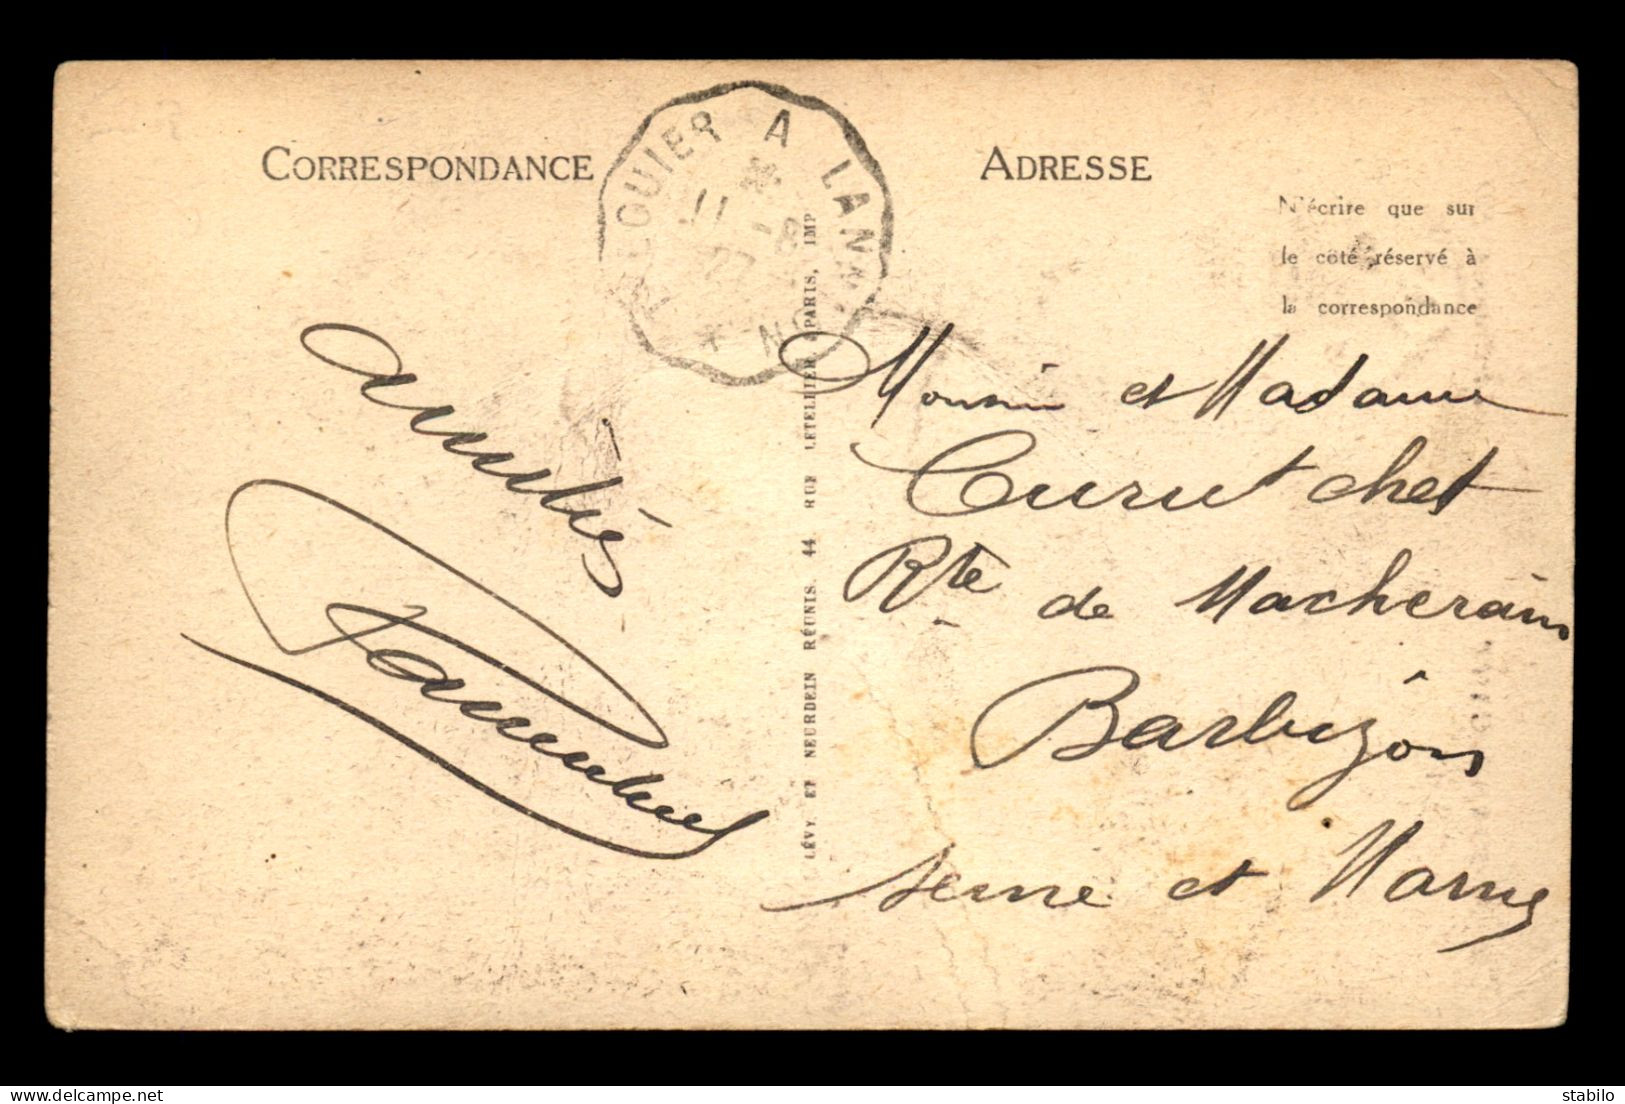 CORRESPONDANCE
ADRESSE
N'écrire que sur
le côté réservé à
la correspondance
TREGUIER A LANNION
11 -8
27
LÉVY ET NEURDEIN RÉUNIS. 44 RUE LETELLIER, PARIS, IMP
Amitiés
Monsieur et Madame
Curutchet
Rte de Macherain
Barbizon
Seine et Marne
delcampe.net
stabilo